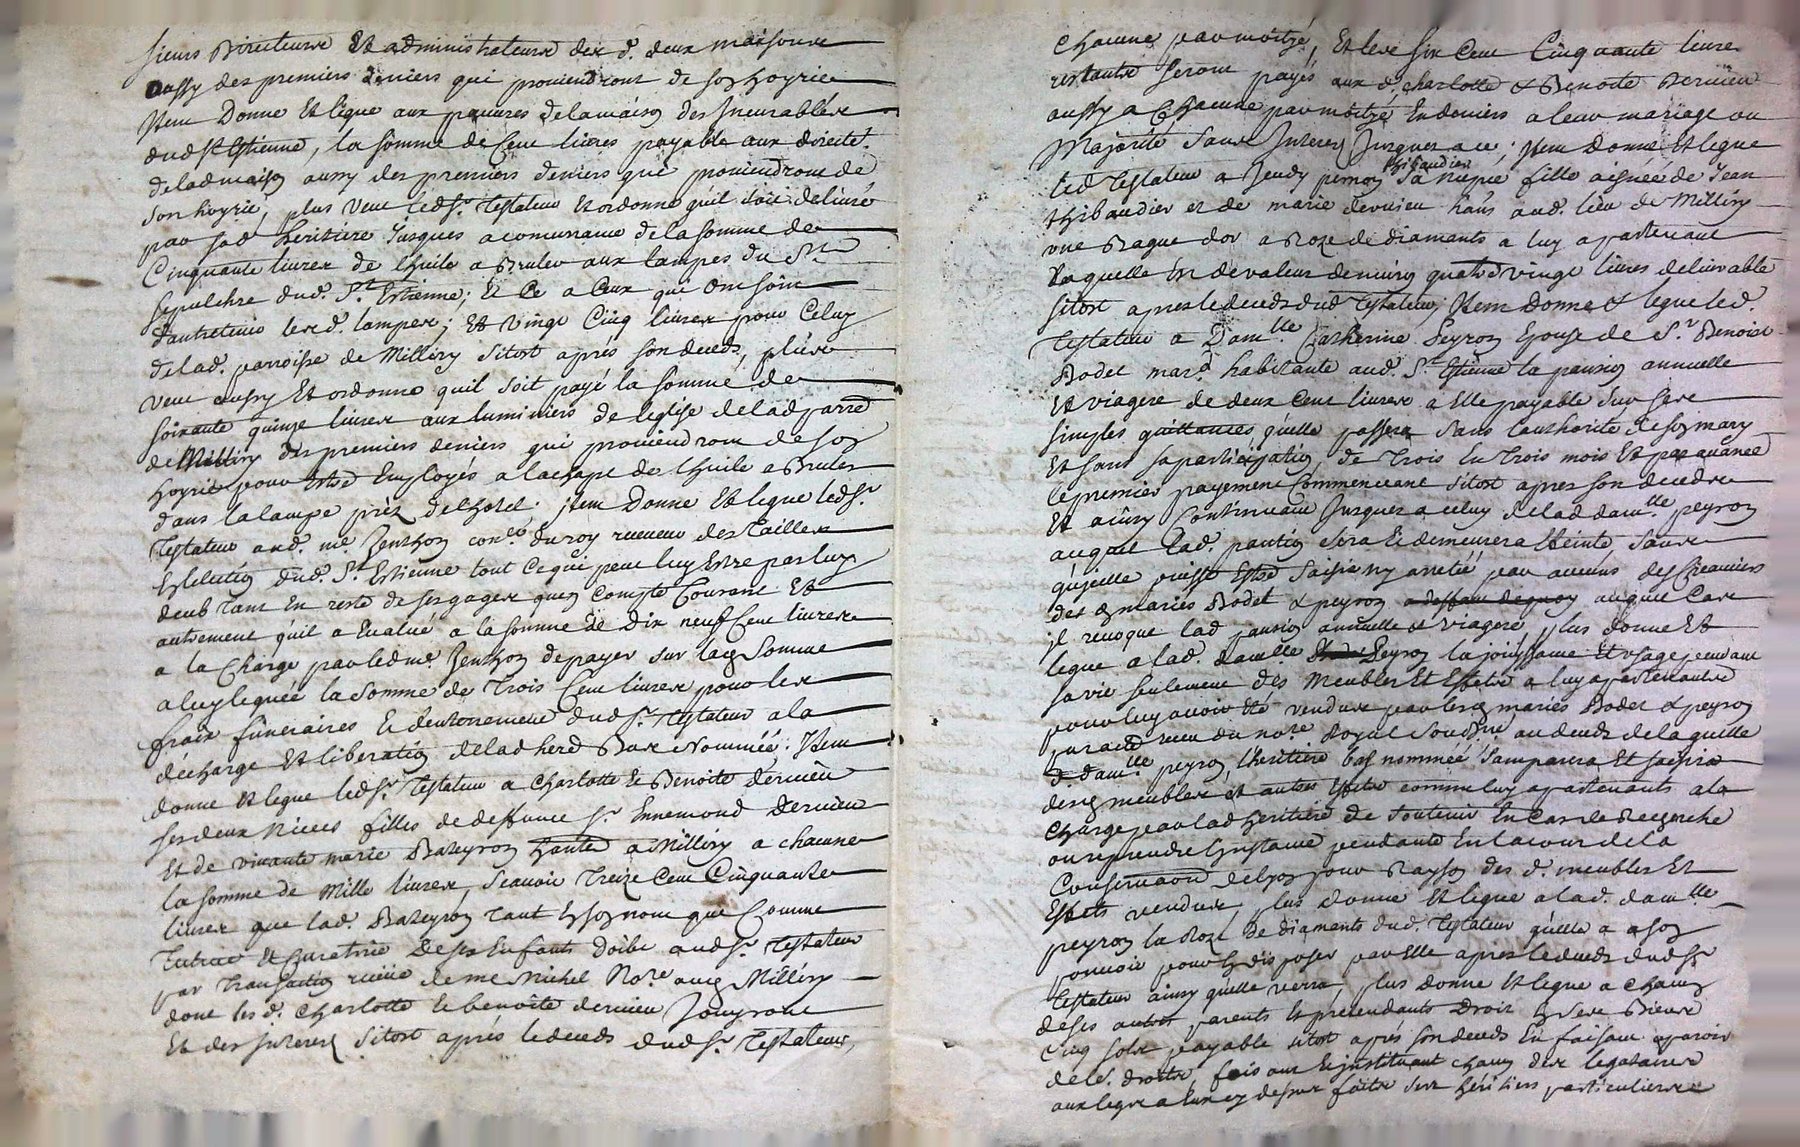 sieurs Directeurs Et administrateurs des d. deux maisons
aussy des premiers deniers qui proviendront de son hoyrie
Item Donne Et lègue aux pauvres de la maison des Incurables
dud St Estienne, la somme de Cent livres payable aux direct.
de lad maison aussy des premiers deniers qui proviendront de
son hoyrie, plus veut led Sr. Testateur Et ordonne qu'il soit délivré
par sad héritière Jusques a concurrance de la somme de
Cinquante livres de l'huile a Bruler aux lampes du St
Sepulchre dud. St. Estienne; Et Ce a Ceux qui ont soin
d'autretenir les d. lampes; Et vingt Cinq livres pour Celuy
de lad. parroisse de Millery sitost après son deceds, plus
veut aussy Et ordonne qu'il soit payé la somme de
soixante quinze livres aux luminiers de l'eglise de lad parre
de Millery des premiers deniers qui proviendront de son
hoyrie pour Estre Employés a l'achapt de l'huile a Bruler
dans la lampe près de l'hotel. Item Donne Et legue led Sr.
Testateur aud. me. Jenthon con.er du roy receveur des Tailles
En l'election dud. St. Estienne tout Ce qui peut luy Estre par luy
deub tant En reste de ses gages qu'en Compte Courant Et
autrement qu'il a Evalué a la somme de Dix neuf Cent livres
a la Charge par led me. Jenthon de payer sur lad Somme
a luy leguée la Somme de Trois Cent livres pour les
fraix funeraires Et d'enterrement dud Sr. Testateur a la
décharge Et liberation de lad herd Bas Nommée. Item
donne Et legue led Sr. Testateur a Charlotte Et Benoite Dervieu
ses deux Nieces filles de deffunct Sr. Ennemond Dervieu
Et de vivante marie Bazeyron hante a Millery a chacune
la somme de Mille livres, Scavoir Treize Cent Cinquante
livres que lad. Bazeyron Tant En son nom que Comme
Tutrice Et Curatrice De ses Enfants Doibt aud Sr. Testateur
par Transaction recüe de me Michel No.re aud Millery
dont les d. Charlotte Et benoîte dervieu Jouyront
Et des Interests sitost après le deceds dud Sr. Testateur,
Chacune par moitié, Et les six Cent Cinquante livres
restants seront payés aux d. charlotte & Benoite Dervieu
aussy a Chacune par moitié En deniers a leur mariage ou
Majorité Sans Interest Jusques a ce; Item Donne Et legue
led Testateur a Jeudy pernon Thibaudier sa niepce fille aisnée de Jean
thibaudier et de marie dervieu hãns aud. lieu de Millery
une Bague d'or a Roze de diamants a luy apartenant
laquelle Est de valeur d'environ quatre vingt livres delivrable
sitost apres le deceds dud Testateur, Item donne & legue led.
Testateur a Dam.lle Catherine Peyron Epouse de Sr Benoist
Bodet mar.d habitante aud. St Estienne la pansion annuelle
Et viagere de deux Cent livres a Elle payable sur ses
simples quittances qu'elle passera Sans l'authorité de son mary
Et sans sa participation de Trois En Trois mois Et par avance
le premier payement Commencant sitost apres son deceds
Et ainsy Continuant Jusques a celuy de lad dam.lle peyron
auquel lad. pantion sera Et demeurera Eteinte, sans
qu'icelle puisse Estre saisie ny arretée par aucuns des Creanciers
des mariés Bodet & peyron auquel Cas
il revoque lad pansion annuelle & viagere, plus donne Et
legue a lad. damlle Peyron la jouissance Et usage pendant
sa vie seulement des Meubles Et Effets a luy apartenants
pour luy avoir Eté vendus par les mariés Bodet & peyron
par acte receu du no.re Royal Soud.né au deceds de laquelle
d dam.lle peyron l'héritière bas nommée s'amparera Et saisira
desd meubles et autres Effets comme luy apartenants a la
Charge par lad héritière de soutenir En Cas de Recherche
ou reprendre l'instance pendante En la cour de la
Conservation de Lyon pour Rayson des d. meubles Et
Effets vendus, plus donne Et legue a lad. dam.lle
peyron la Roze de diamants dud. Testateur qu'elle a a son
pouvoir pour En disposer par Elle apres le deceds dud Sr
Testateur ainsy qu'elle verra, plus donne Et legue a chacun
de ses autres parents Et prétendants Droit En ses Biens
Cinq sols payable sitost après son deceds En faisant aparoir
de leurs droits, fais ant Et instituant chacun des legataires
aux legs a Eux cy dessus faits ses héritiers particuliers